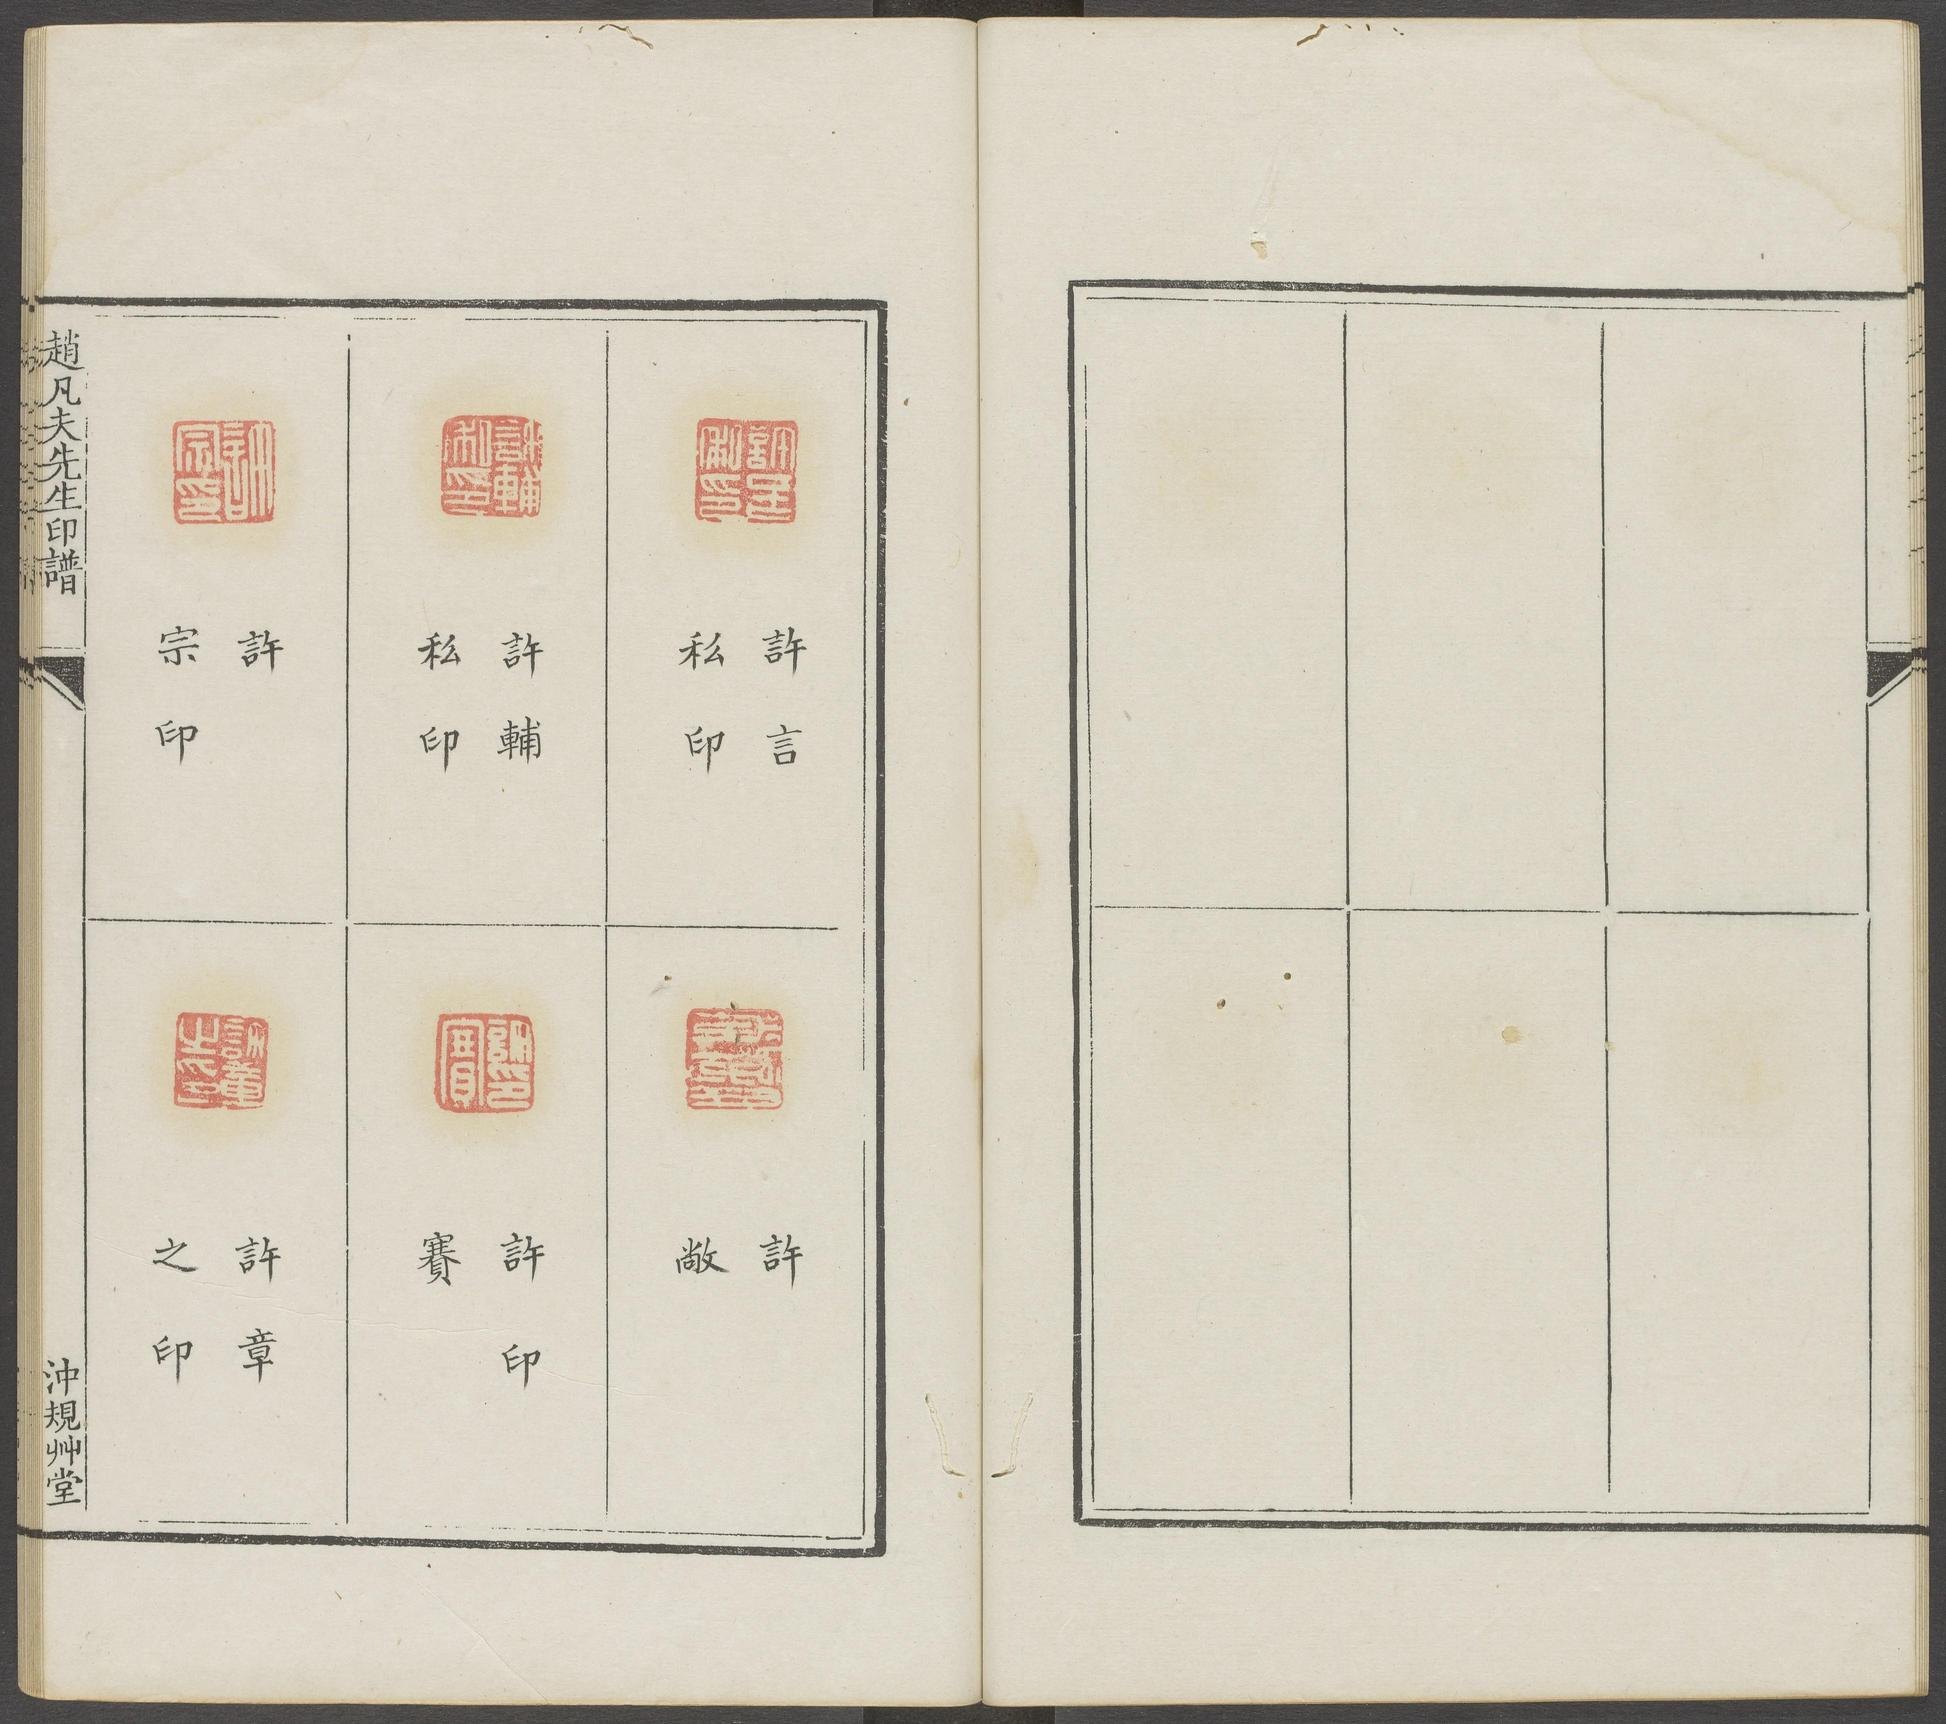 許言
私印
許輔
私印
許
宗印
許
敞
許印
賽
許章
之印
趙凡夫先生印譜
沖規艸堂